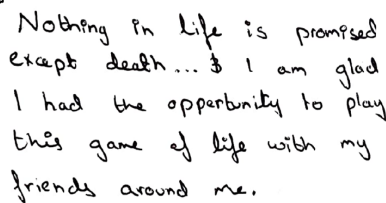 Nothing in life is promised
except death... & I am glad
I had the oppertunity to play
this game of life with my
friends around me.